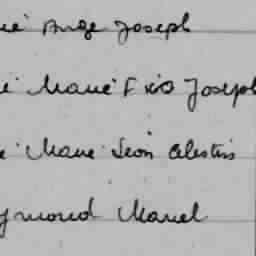 Ange Joseph
Marie Joseph
Marie Léon Celestin
ymond Marcel